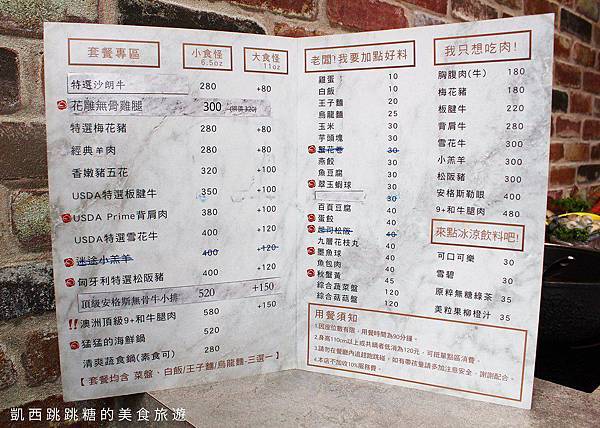 套餐專區
小食怪
6.5oz
大食怪
11oz
特選沙朗牛 280 +80
花雕無骨雞腿 300
特選梅花豬 280 +80
經典羊肉 280 +80
香嫩豬五花 320 +100
USDA特選板腱牛 350 +100
USDA Prime背肩肉 380 +100
USDA特選雪花牛 400 +100
迷途小羔羊 400 +120
匈牙利特選松阪豬 400 +120
頂級安格斯無骨牛小排 520 +150
澳洲頂級9+和牛腿肉 580 +150
猛猛的海鮮鍋 520
清爽蔬食鍋(素食可) 280
【 套餐均含 菜盤、白飯/王子麵/烏龍麵-三選一 】
老闆!我要加點好料
雞蛋 10
白飯 10
王子麵 20
烏龍麵 20
玉米 30
芋頭塊 30
蟹花卷 30
燕餃 30
魚豆腐 30
翠玉蝦球 30
百頁豆腐 40
蛋餃 40
40
九層花枝丸 40
墨魚球 40
魚包肉 40
秋蟹黃 40
綜合蔬菜盤 120
綜合菇菇盤 120
我只想吃肉!
胸腹肉(牛) 180
梅花豬 180
板腱牛 220
背肩牛 280
雪花牛 300
小羔羊 300
松阪豬 300
安格斯勒眼 400
9+和牛腿肉 480
來點冰涼飲料吧!
可口可樂 30
雪碧 30
原粹無糖綠茶 35
美粒果柳橙汁 35
用餐須知
1.因座位數有限，用餐時間為90分鐘。
2.身高110cm以上或共鍋者低消為120元，可抵單點區消費。
3.請勿在餐廳內追趕跑跳碰，如有帶孩童請多加注意安全，謝謝配合。
4.本店不加收10%服務費。
凱西跳跳糖的美食旅遊